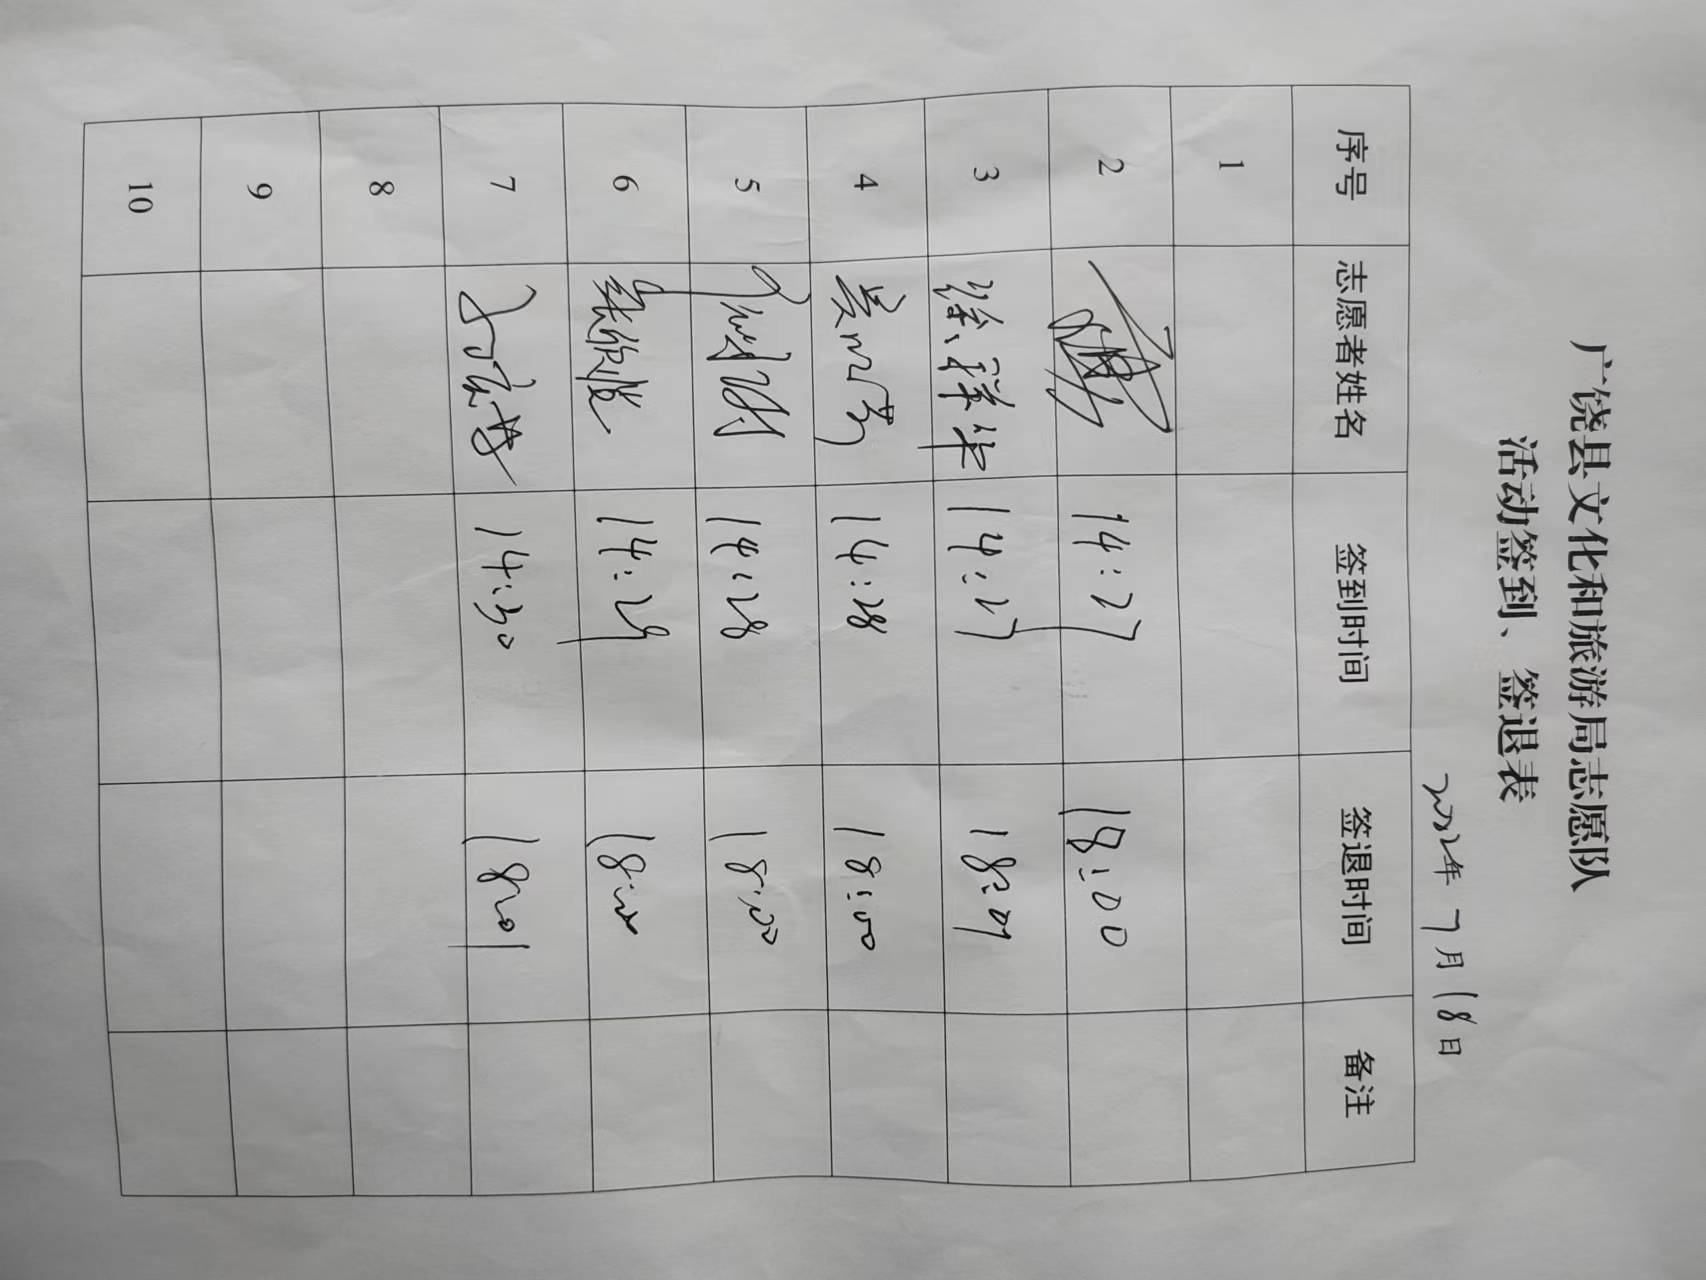 广饶县文化和旅游局志愿队
活动签到、签退表
2022年7月18日
序号 志愿者姓名 签到时间 签退时间 备注
1
2 14:27 18:00
3 徐祥华 14:27 18:01
4 14:28 18:00
5 14:28 18:00
6 14:29 18:00
7 14:30 18:01
8
9
10